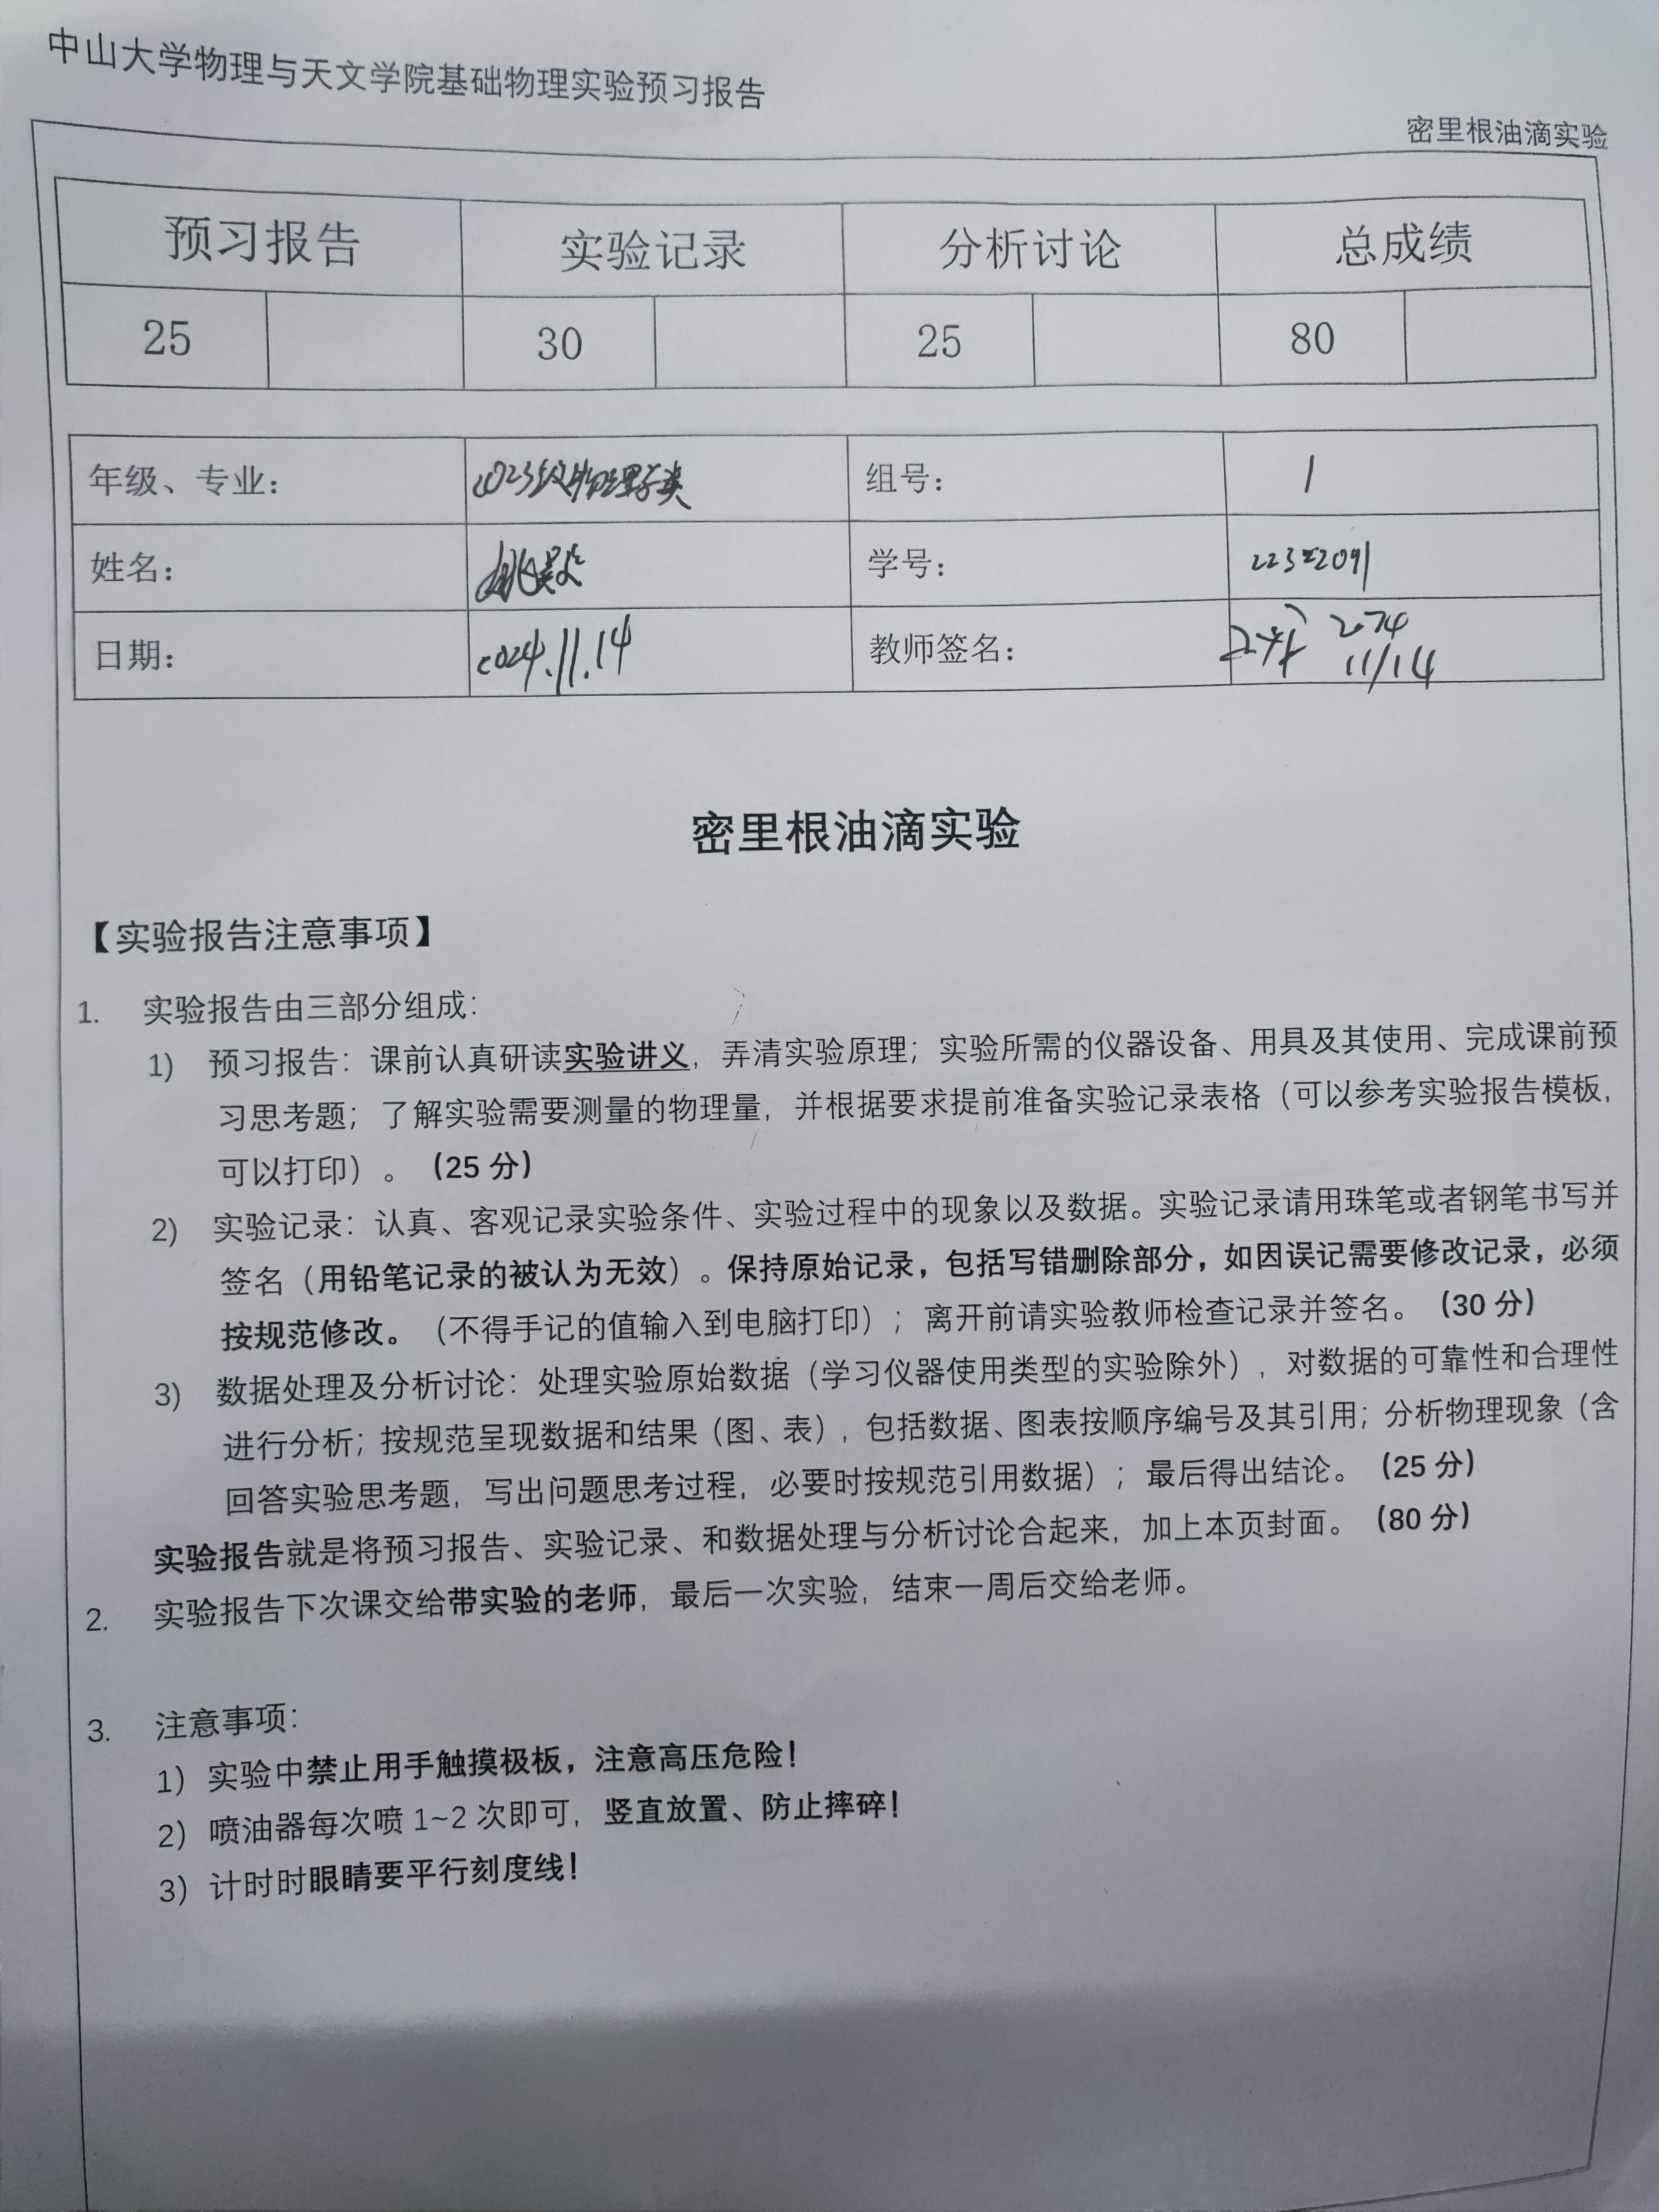 中山大学物理与天文学院基础物理实验预习报告
密里根油滴实验
预习报告 实验记录 分析讨论 总成绩
25 30 25 80
年级、专业： 2023级物理学类 组号： 1
姓名： 学号：
日期： 2024.11.14 教师签名： 11/14
密里根油滴实验
【实验报告注意事项】
1. 实验报告由三部分组成：
1) 预习报告：课前认真研读实验讲义，弄清实验原理；实验所需的仪器设备、用具及其使用、完成课前预
习思考题；了解实验需要测量的物理量，并根据要求提前准备实验记录表格（可以参考实验报告模板，
可以打印）。（25 分）
2) 实验记录：认真、客观记录实验条件、实验过程中的现象以及数据。实验记录请用珠笔或者钢笔书写并
签名（用铅笔记录的被认为无效）。保持原始记录，包括写错删除部分，如因误记需要修改记录，必须
按规范修改。（不得手记的值输入到电脑打印）；离开前请实验教师检查记录并签名。（30 分）
3) 数据处理及分析讨论：处理实验原始数据（学习仪器使用类型的实验除外），对数据的可靠性和合理性
进行分析；按规范呈现数据和结果（图、表），包括数据、图表按顺序编号及其引用；分析物理现象（含
回答实验思考题，写出问题思考过程，必要时按规范引用数据）；最后得出结论。（25 分）
实验报告就是将预习报告、实验记录、和数据处理与分析讨论合起来，加上本页封面。（80 分）
2. 实验报告下次课交给带实验的老师，最后一次实验，结束一周后交给老师。
3. 注意事项：
1）实验中禁止用手触摸极板，注意高压危险！
2）喷油器每次喷 1~2 次即可，竖直放置、防止摔碎！
3）计时时眼睛要平行刻度线！